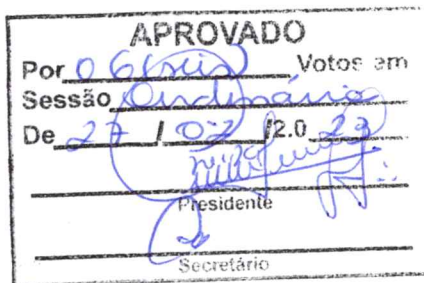 APROVADO
Por 06 (seis) Votos em
Sessão Ordinária
De 27 / 02 /2.0 23
Presidente
Secretário